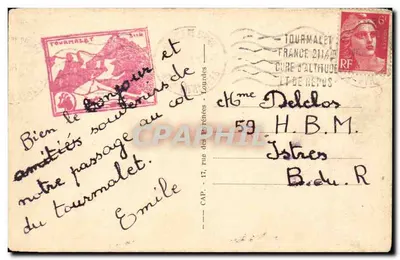 TOURMALET
TOURMALET
FRANCE 2114
CURE D'ALTITUDE
ET DE REPOS
6
RF
Bien le bonjour et
amitiés souvenirs de
notre passage au col
du tourmalet.
Emile
CAP. - 17, rue des Pyrénées - Lourdes
Mme Delclos
59 H.B.M.
Istres
B.du.R
Cartes-Postales